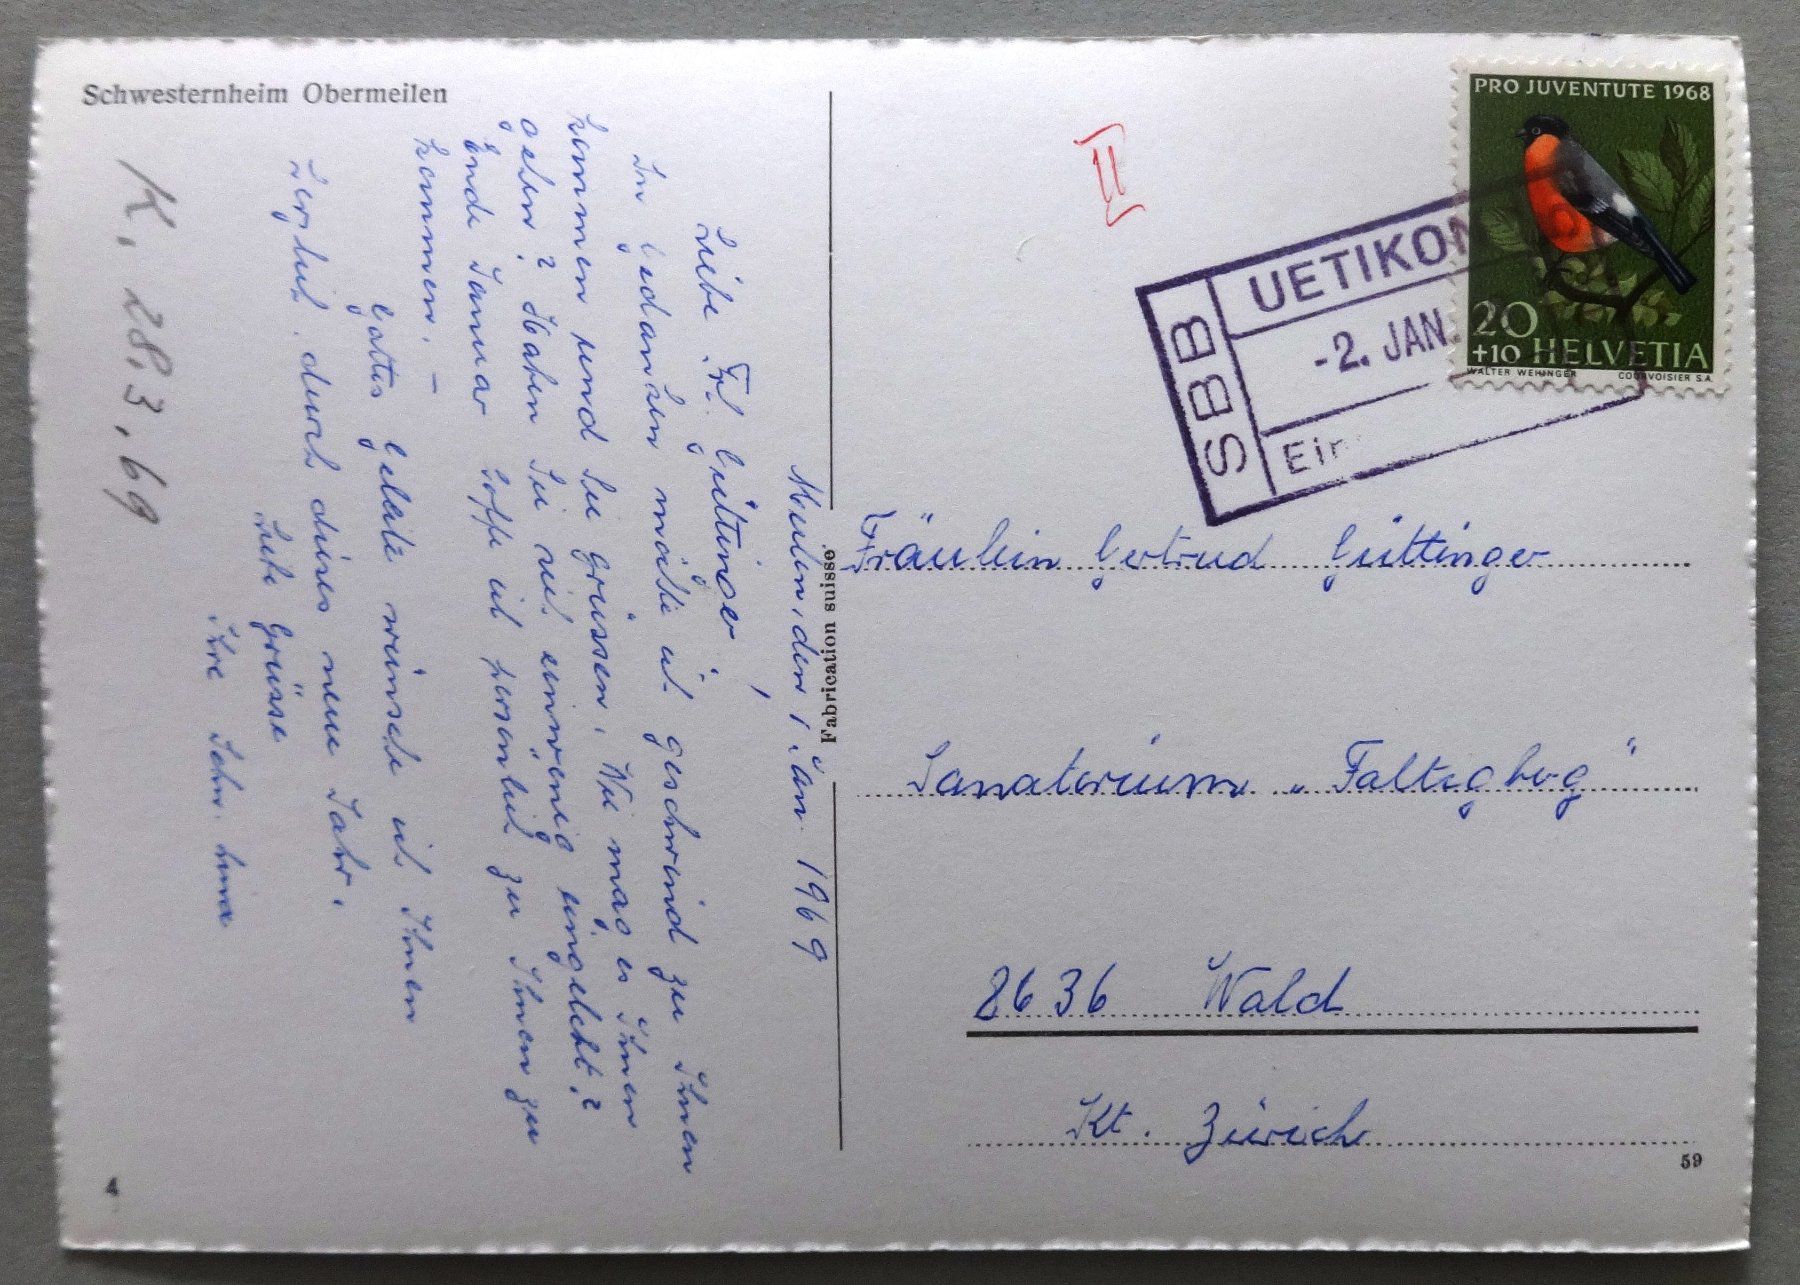 Schwesternheim Obermeilen
K. 28.3.69
Meilen, den 1. Jan. 1969
Liebe Frl. Güttinger,
In Gedanken möchte ich geschwind zu Ihnen
kommen und Sie grüssen. Wie mag es Ihnen
gehen? Haben Sie sich einwenig eingelebt?
Ende Januar hoffe ich persönlich zu Ihnen zu
kommen. –
Gottes Geleite wünsche ich Ihnen
herzlich durch dieses neue Jahr.
Liebe Grüsse
Ihre Schw. Lina
4
Fabrication suisse
II
PRO JUVENTUTE 1968
20
+10 HELVETIA
WALTER WEHINGER COURVOISIER S.A.
SBB
UETIKON
-2. JAN.
Fräulein Gertrud Güttinger
Sanatorium „Faltigberg"
8636 Wald
Kt. Zürich
59